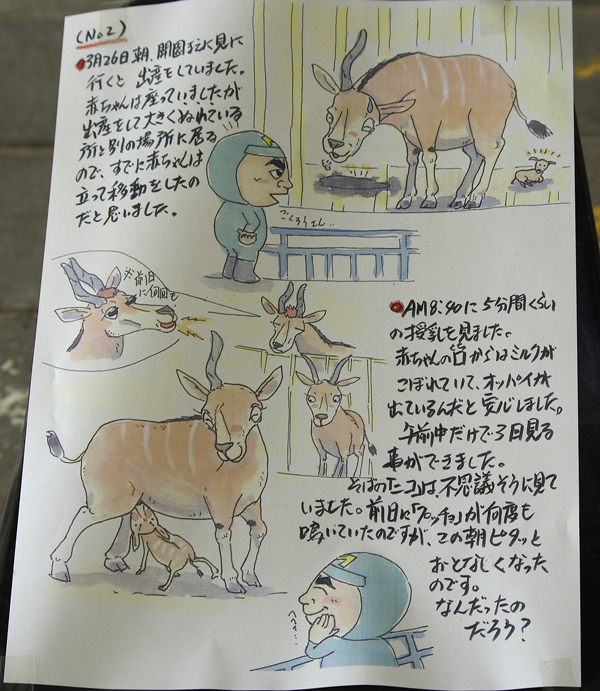 (No2)
●3月26日朝、開園前に見に
行くと出産をしていました。
赤ちゃんは座っていましたが
出産をして大きくぬれている
所と別の場所に居る
ので、すでに赤ちゃんは
立って移動をしたの
だと思いました。
ごくろうさん..
※前日
に何回も
●AM8:40に5分間くらい
の授乳を見ました。
赤ちゃんの口からはミルクが
こぼれていて、オッパイが
出ているんだと安心しました。
午前中だけで3回見る
事ができました。
そばの「ニコ」は、不思議そうに見て
いました。前日に「グッチョ」が何度も
鳴いていたのですが、この朝ピタッと
おとなしくなった
のです。
なんだったの
だろう?